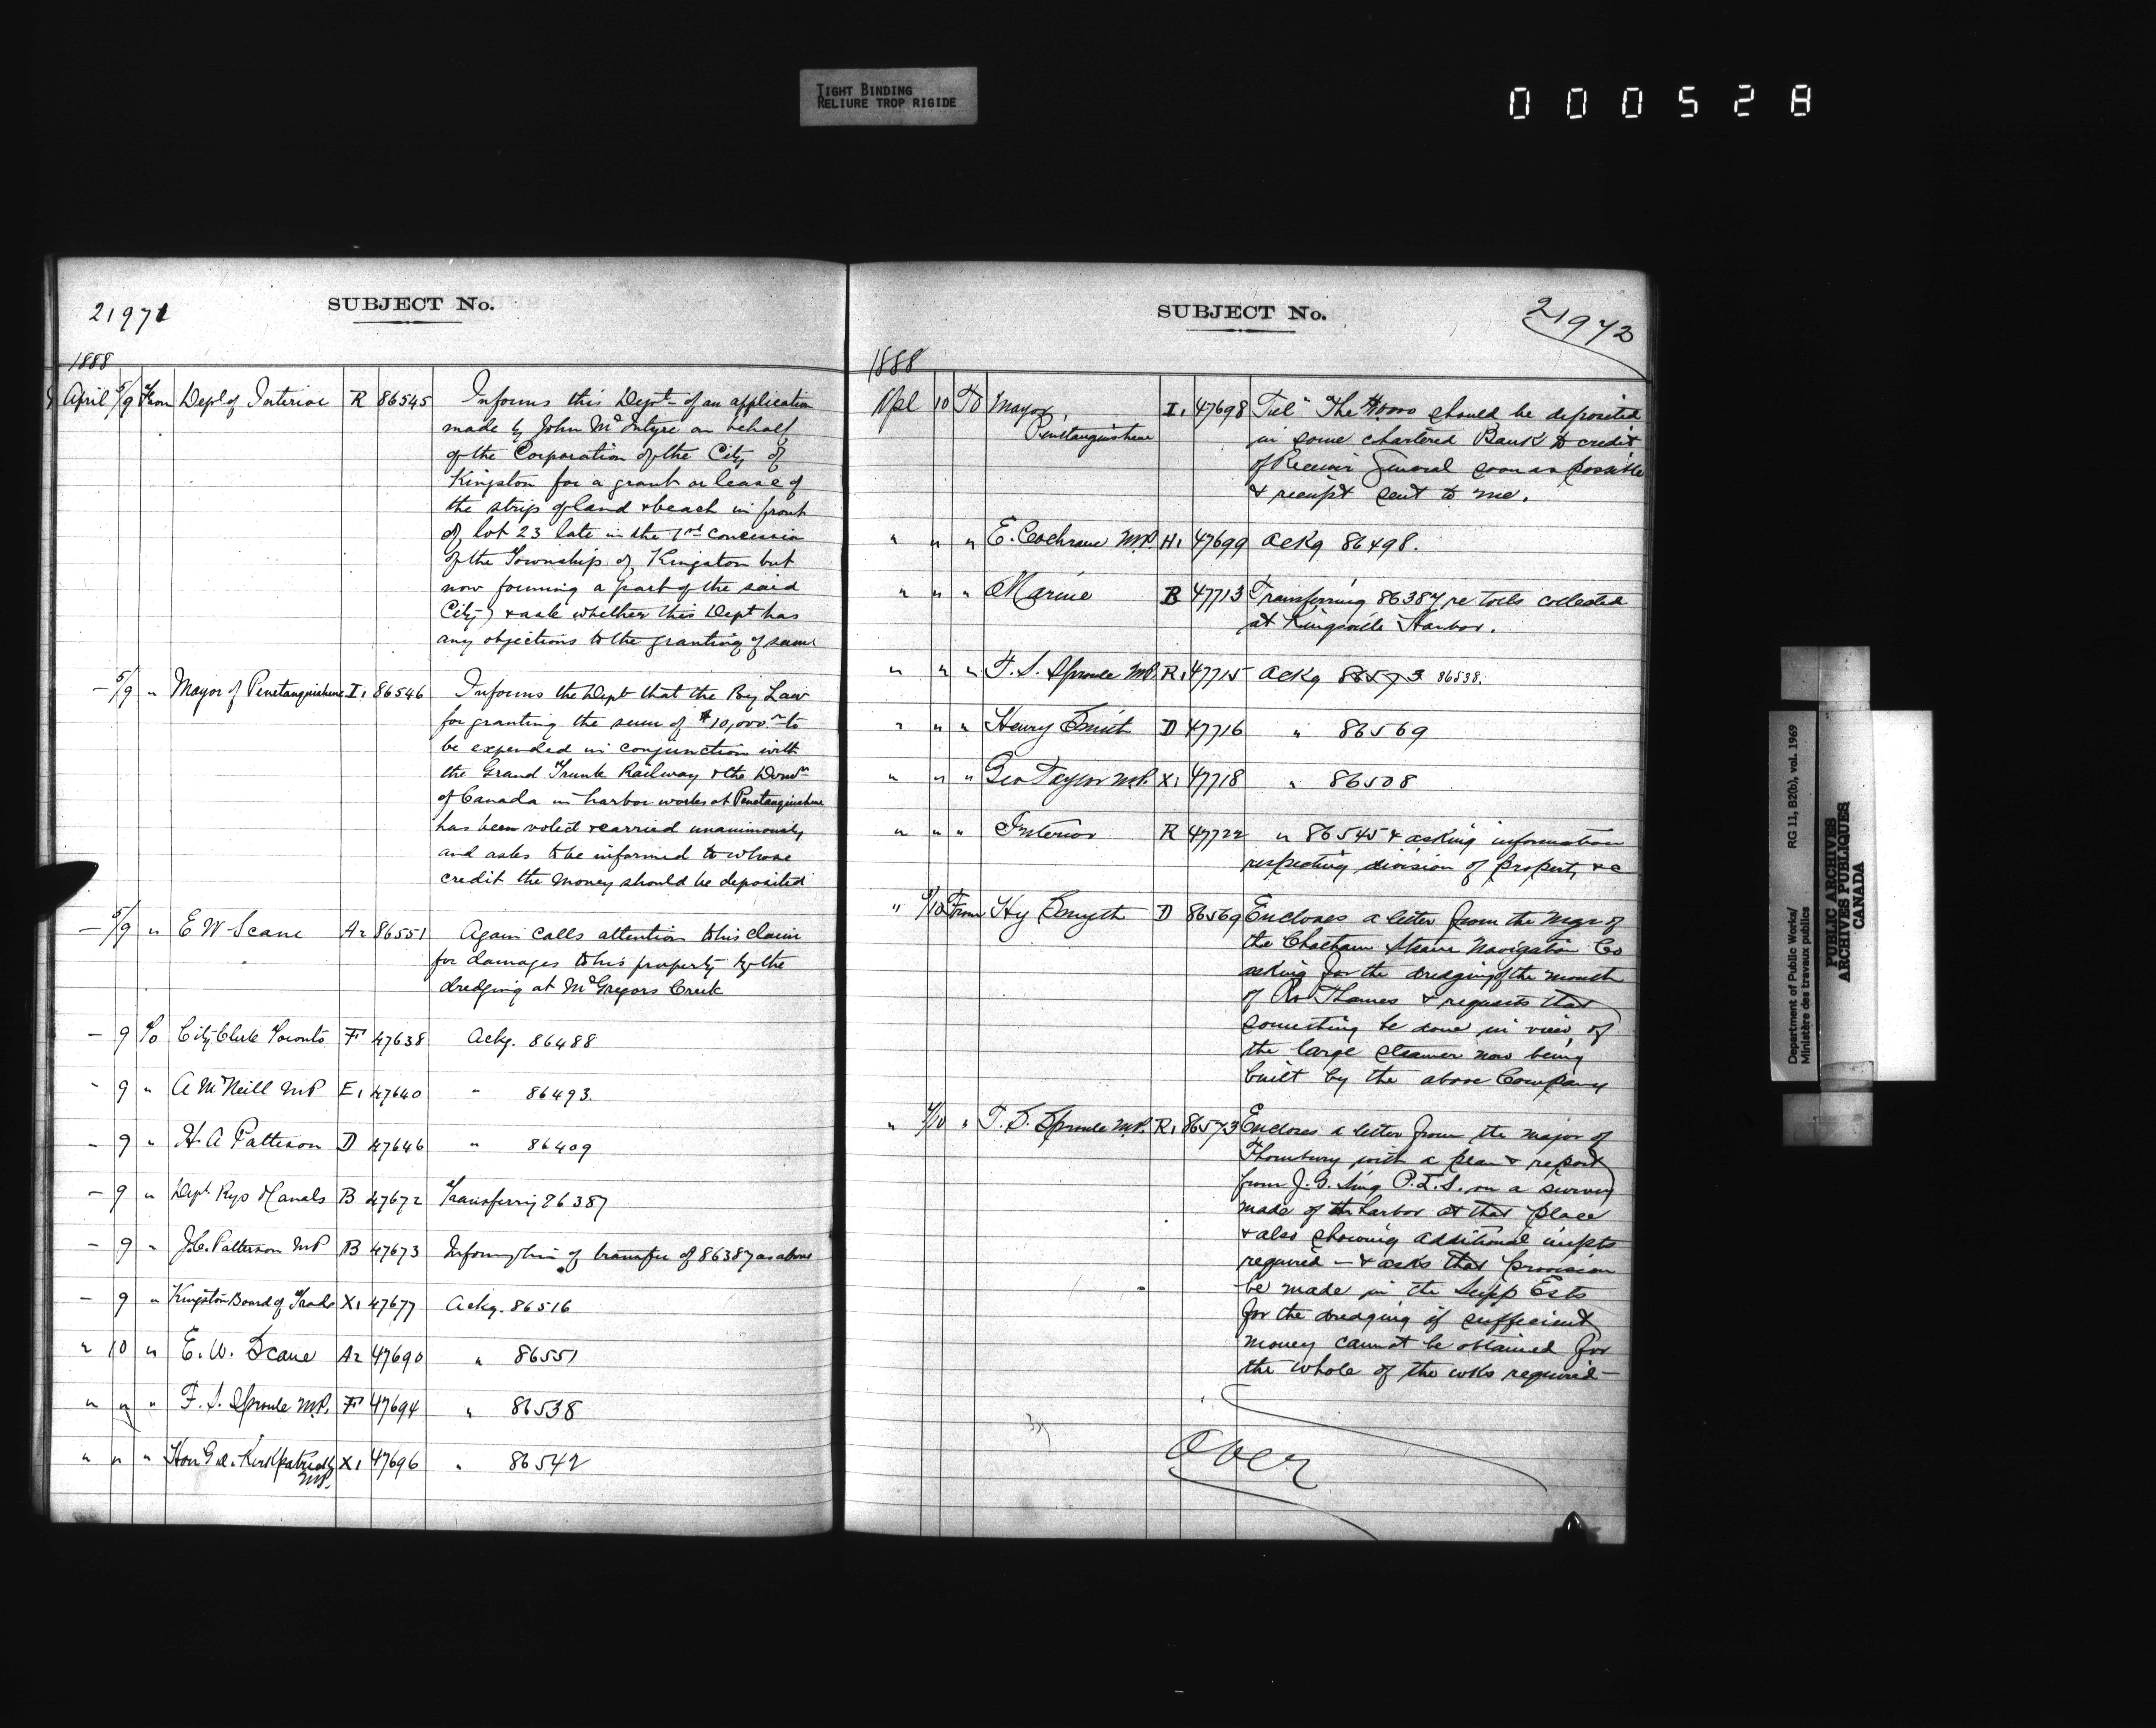 TIGHT BINDING
RELIURE TROP RIGIDE
000528
21971
SUBJECT No.
1888
April 5/9 From Dept of Interior R 86545 Informs this Dept of an application
made by John McIntyre on behalf
of the Corporation of the City of
Kingston for a grant or lease of
the strip of land & beach in front
of lot 23 late in the 1st concession
of the Township of Kingston but
now forming a part of the said
City) & ask whether this Dept has
any objections to the granting of same
— 5/9 " Mayor of Penetanguishene I1 86546 Informs the Dept that the By Law
for granting the sum of $10,000 to
be expended in conjunction with
the Grand Trunk Railway & the Domn
of Canada in harbor works at Penetanguishene
has been voted & carried unanimously
and asks to be informed to whose
credit the money should be deposited
— 5/9 " E W Scane A2 86551 Again calls attention to his claim
for damages to his property by the
dredging at McGregors Creek
— 9 To City Clerk Toronto F 47638 Ackg. 86488
" 9 " A McNeill MP E1 47640 " 86493.
" 9 " H. A Patterson D 47646 " 86409
— 9 " Dept. Rys & Canals B 47672 Transferring 86387
— 9 " J.C. Patterson MP B 47673 Informing him of transfer of 86387 as above
— 9 " Kingston Board of Trade X1 47677 Ackg. 86516
" 10 " E. W. Scane A2 47690 " 86551
" " " F. S. Sproule M.P. F 47694 " 86538
" " " Hon G. A. Kirkpatrick X1 47696 " 86542
MP.
SUBJECT No.
21972
1888
Apl 10 To Mayor, I1 47698 Tel The $10000 should be deposited
Penetanguishene in some chartered Bank to credit
of Receiver General soon as possible
& receipt sent to me.
" " " E. Cochrane MP. H1 47699 Ackg 86498.
" " " Marine B 47713 Transferring 86387 re tolls collected
at Kingsville Harbor.
" " " T. S. Sproule MP. R1 47715 Ackg 86573 86538.
" " " Henry Smith D 47716 " 86569
" " " Geo Taylor M.P. X1 47718 " 86508
" " " Interior R 47722 " 86545 & asking information
respecting division of property &c
" 9/10 From Hy Smyth D 86569 Encloses a letter from the Mgr of
the Chatham Steam Navigation Co
asking for the dredging of the mouth
of Rv Thames & requests that
something be done in view of
the large steamer now being
built by the above Company
" 9/10 " T. S. Sproule M.P. R1 86573 Encloses a letter from the major of
Thornbury with a plan & report
from J. G. Sing P.L.S. on a survey
made of the harbor at that place
& also showing additional impts
required — & asks that provision
be made in the Supp Ests
for the dredging if sufficient
money cannot be obtained for
the whole of the wks required —
Over
Department of Public Works/ RG 11, B2(b), vol. 1969
Ministère des travaux publics
PUBLIC ARCHIVES
ARCHIVES PUBLIQUES
CANADA